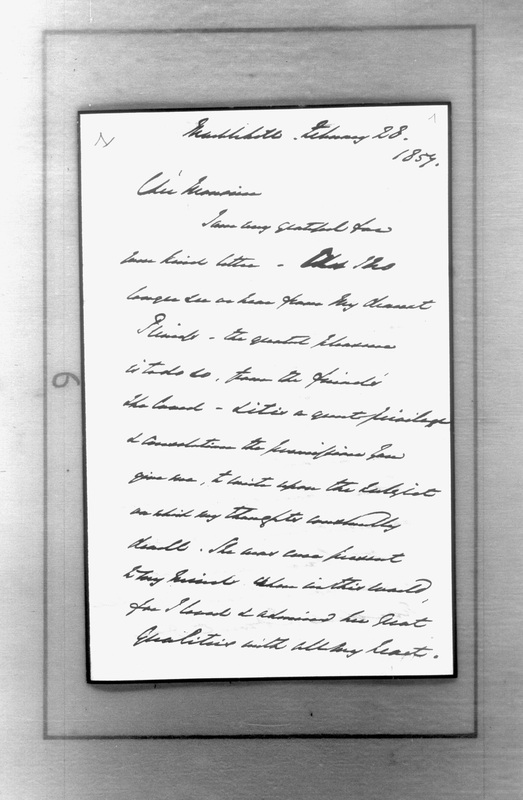 February 28.
1857.
Cher Monsieur
I am very grateful for
your kind letter - As I no
longer see or hear from my dearest
Friend - the greatest pleasure
is to do so, from the friends
She loved - & it is a great privilege
& consolation the permission you
give me, to write upon the subject
on which my thoughts constantly
dwell. She was ever present
to my mind when in this world,
for I loved & admired her great
qualities with all my heart.